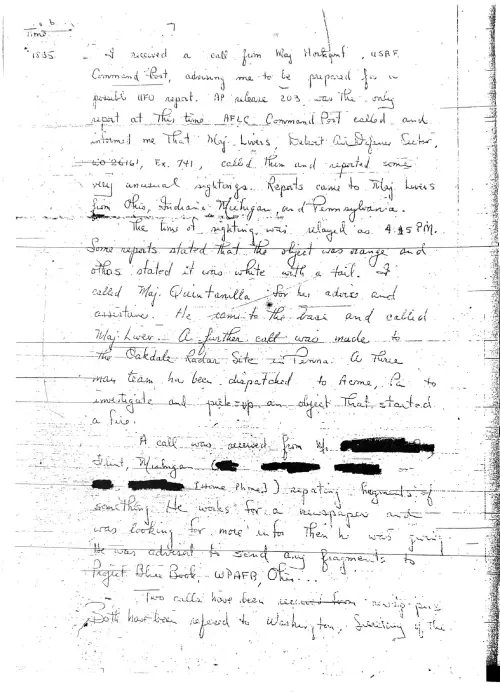 Time
1835 - I received a call from Maj Hortquist, USAF
Command Post, advising me to be prepared for a
possible UFO report. AP release 203 was the only
report at this time AFLC Command Post called and
informed me that Maj. Livers, Detroit Air Defense Sector,
Ex. 741, called them and reported some
very unusual sightings. Reports came to Maj Livers
from Ohio, Indiana, Michigan, and Pennsylvania.
The time of sighting was relayed as 4:45 PM.
Some reports stated that the object was orange and
others stated it was white with a tail. I
called Maj. Quintanilla for his advice and
assistance. He came to the base and called
Maj. Liver. A further call was made to
the Oakdale Radar Site in Penna. A three
man team has been dispatched to Acme, Pa to
investigate and pick-up an object that started
a fire.
A call was received from Mr.
Flint, Michigan ( or
[Home Phone]) reporting fragments of
something. He works for a newspaper and
was looking for more info then he was giving
He was advised to send any fragments to
Project Blue Book, WPAFB, Ohio...
Two calls have been received from
Both have been refered to Washington, Secretary of the